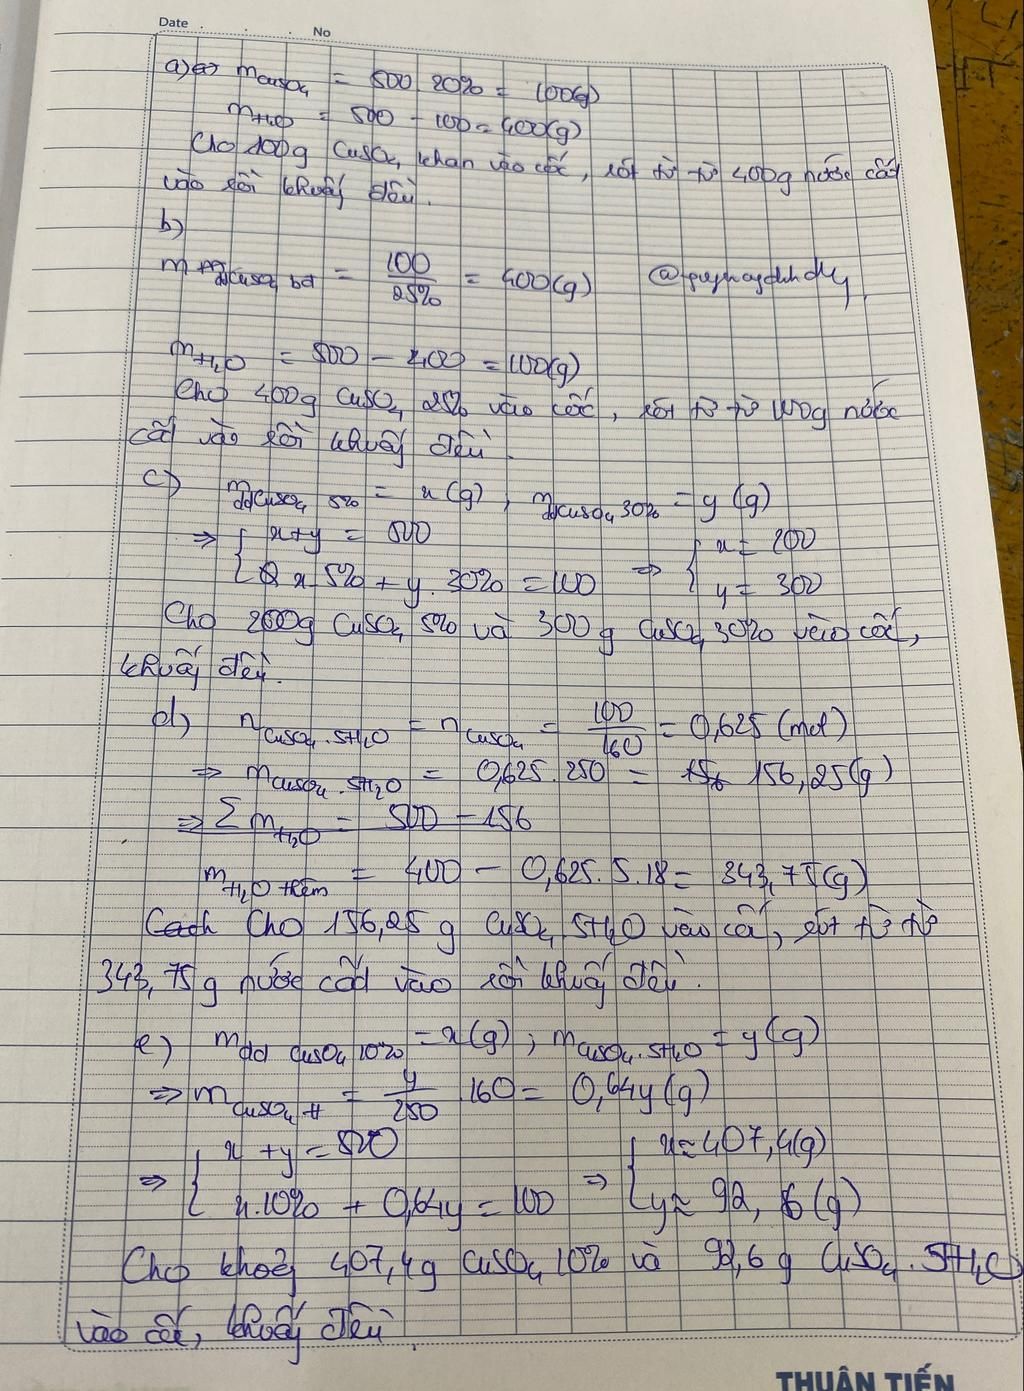 Date . . . No
a) ⇔ mCuSO4 = 500.20% = 100(g)
mH2O = 500 - 100 = 400(g)
Cho 100g CuSO4 khan vào cốc, rót từ từ 400g nước cất
vào rồi khuấy đều.
b)
mddCuSO4 bđ = 100/25% = 400(g)
mH2O = 500 - 400 = 100(g)
Cho 400g CuSO4 25% vào cốc, rót từ từ 100g nước
cất vào rồi khuấy đều.
c) mddCuSO4 5% = x(g), mddCuSO4 30% = y(g)
⇒ { x+y = 500
x.5% + y.30% = 100 ⇒ { x = 200
y = 300
Cho 200g CuSO4 5% và 300g CuSO4 30% vào cốc,
khuấy đều.
d) nCuSO4.5H2O = nCuSO4 = 100/160 = 0,625 (mol)
⇒ mCuSO4.5H2O = 0,625.250 = 156,25(g)
⇒ ΣmH2O = 500 - 156
mH2O thêm = 400 - 0,625.5.18 = 343,75(g)
Cách Cho 156,25 g CuSO4.5H2O vào cốc, rót từ từ
343,75g nước cất vào rồi khuấy đều.
e) mdd CuSO4 10% = x(g); mCuSO4.5H2O = y(g)
⇒ mCuSO4 tt = y/250 .160 = 0,64y(g)
⇒ { x + y = 500
x.10% + 0,64y = 100 ⇒ { x ≈ 407,4(g)
y ≈ 92,6(g)
Cho khoảg 407,4g CuSO4 10% và 92,6 g CuSO4.5H2O
vào cốc, khuấy đều
THUẬN TIẾN